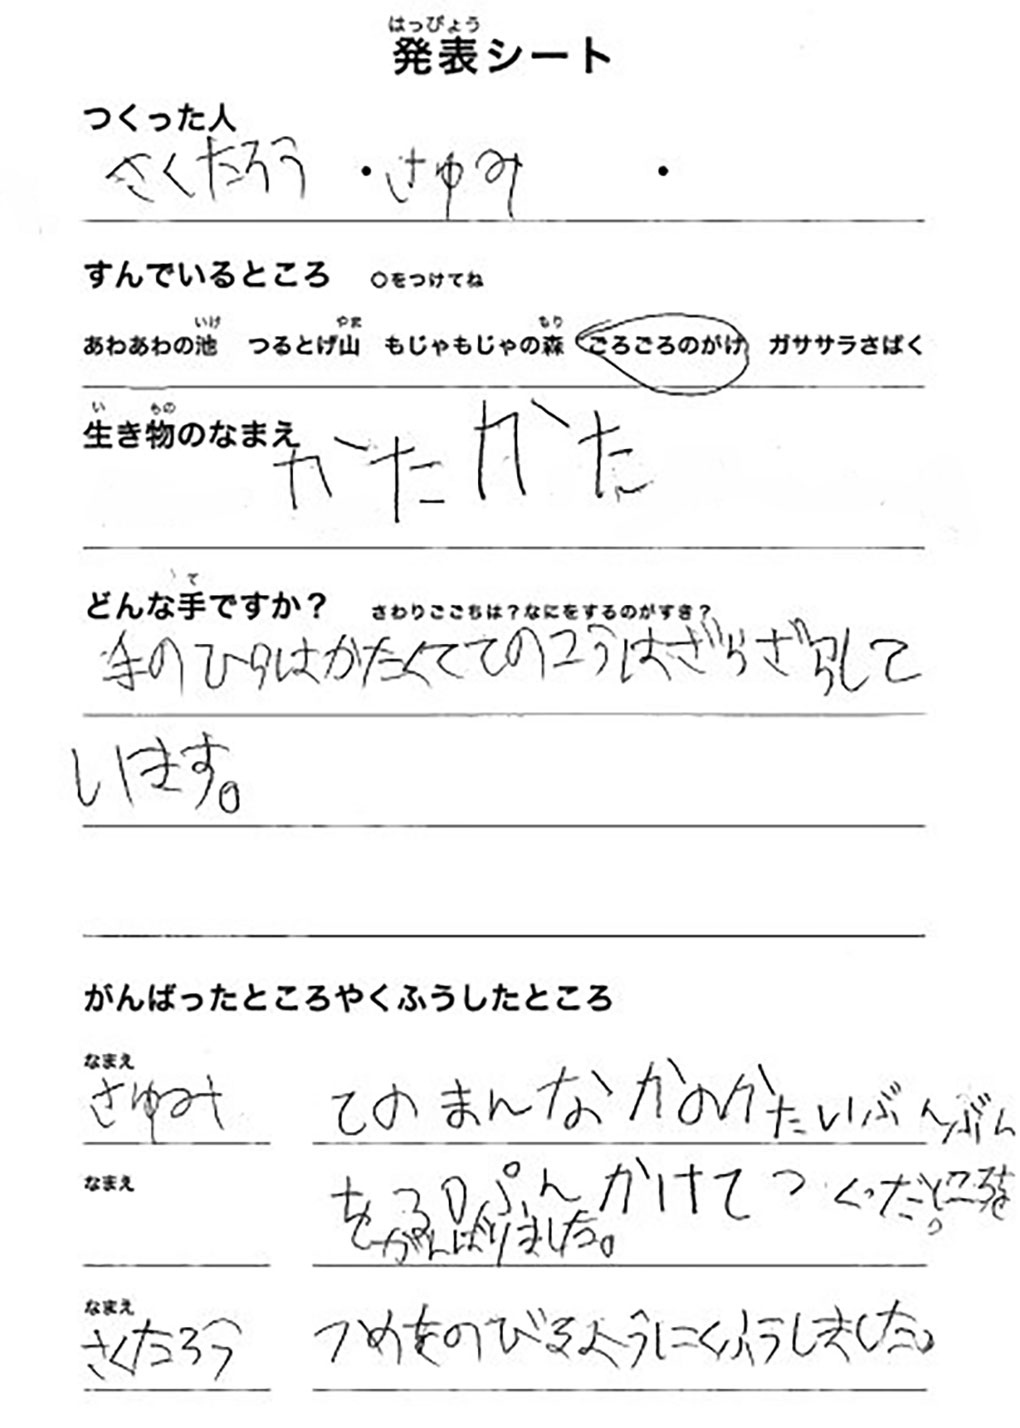 はっぴょう
発表シート
つくった人
さくたろう ・ さゆみ ・
すんでいるところ ○をつけてね
いけ やま もり
あわあわの池 つるとげ山 もじゃもじゃの森 ごろごろのがけ ガササラさばく
い もの
生き物のなまえ
がたがた
て
どんな手ですか? さわりごこちは?なにをするのがすき?
手のひらはかたくてての コうはざらざらして
います。
がんばったところやくふうしたところ
なまえ
さゆみ てのまんなかのかたいぶんぶん
なまえ
を ぷんかけてつくっだところを
がんばりました。
なまえ
さくたろう つめをのびるようにくふうしました。